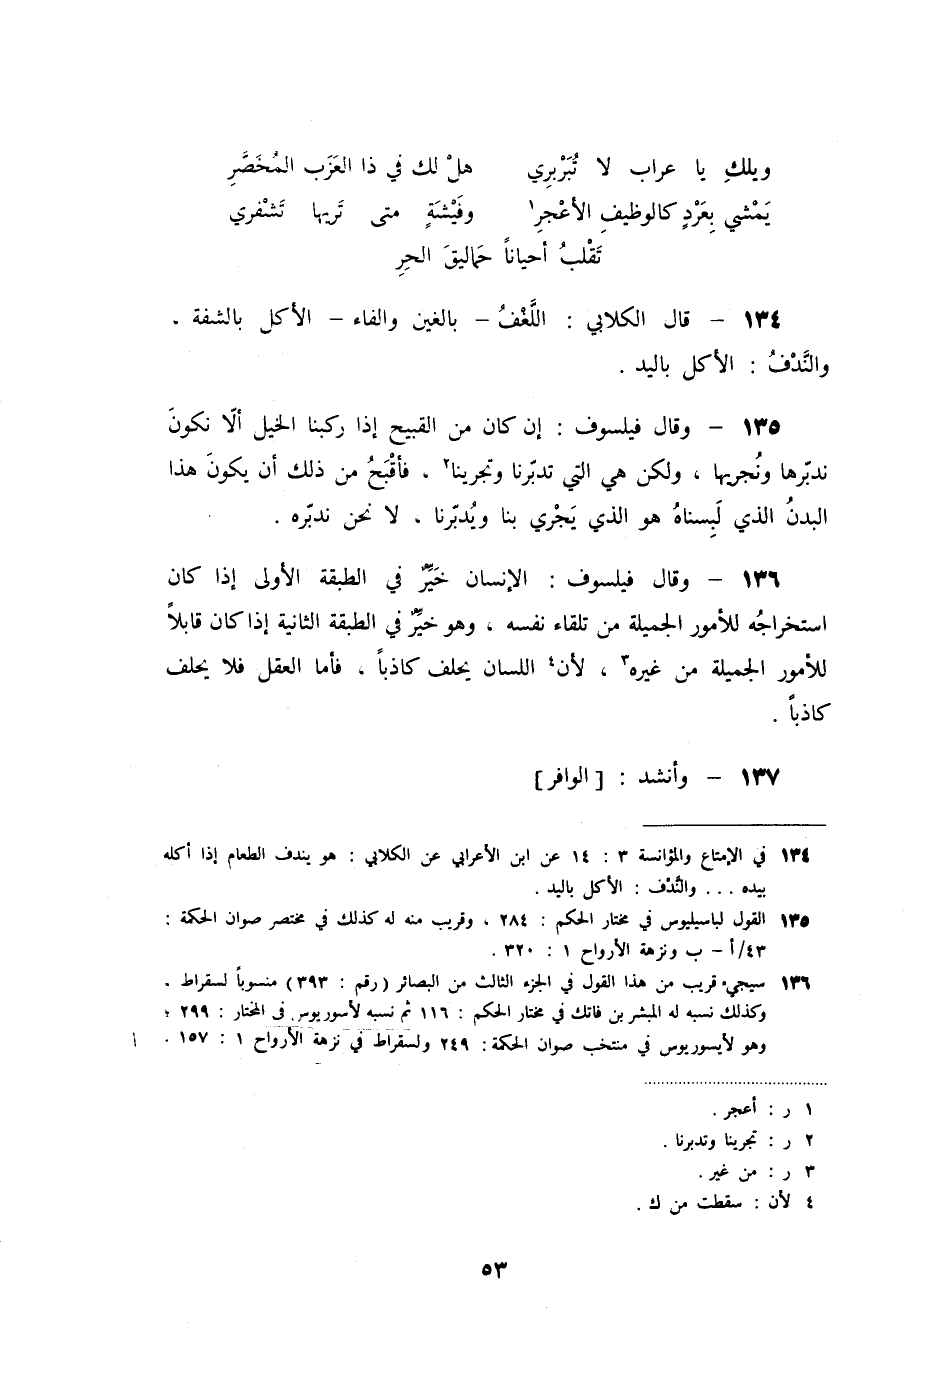 ويلكِ يا عراب لا تُبَرْبِري هلْ لك في ذا العَزَب المُخَصَّرِ
يَمْشي بِعَرْدٍ كالوظيفِ الأعْجرِ١ وفَيْشَةٍ متى تَريها تَشْفري
تَقْلبُ أحياناً حَماليقَ الحرِ
١٣٤ – قال الكلابي : اللَّغْفُ – بالغين والفاء – الأكل بالشفة .
والنَّدْفُ : الأكل باليد .
١٣٥ – وقال فيلسوف : إن كان من القبيح إذا ركبنا الخيل ألّا نكونَ
ندبّرها ونُجريها ، ولكن هي التي تدبّرنا وتجرينا٢ . فأقْبَحُ من ذلك أن يكونَ هذا
البدنُ الذي لَبِسناهُ هو الذي يَجْري بنا ويُدبّرنا . لا نحن ندبّره .
١٣٦ – وقال فيلسوف : الإنسان خَيِّرٌ في الطبقة الأولى إذا كان
استخراجُه للأمور الجميلة من تلقاء نفسه ، وهو خيِّرٌ في الطبقة الثانية إذا كان قابلاً
للأمور الجميلة من غيره٣ ، لأن٤ اللسان يحلف كاذباً . فأما العقل فلا يحلف
كاذباً .
١٣٧ – وأنشد : [الوافر]
١٣٤ في الإمتاع والمؤانسة ٣ : ١٤ عن ابن الأعرابي عن الكلابي : هو يندف الطعام إذا أكله
بيده ... والنَّدْف : الأكل باليد .
١٣٥ القول لباسيليوس في مختار الحكم : ٢٨٤ ، وقريب منه له كذلك في مختصر صوان الحكمة :
٤٣/أ – ب ونزهة الأرواح ١ : ٣٢٠ .
١٣٦ سيجيء قريب من هذا القول في الجزء الثالث من البصائر (رقم : ٣٩٣) منسوباً لسقراط .
وكذلك نسبه له المبشر بن فاتك في مختار الحكم : ١١٦ ثم نسبه لأسوريوس في المختار : ٢٩٩ ؛
وهو لأيسوريوس في منتخب صوان الحكمة : ٢٤٩ ولسقراط في نزهة الأرواح ١ : ١٥٧ .
١ ر : أعجر .
٢ ر : تجرينا وتدبرنا .
٣ ر : من غير .
٤ لأن : سقطت من ك .
٥٣